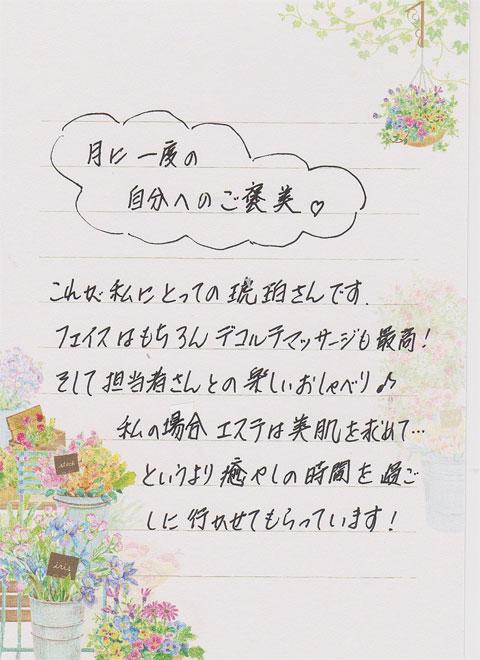 月に一度の
自分へのご褒美♡
これが私にとっての琥珀さんです.
フェイスはもちろんデコルテマッサージも最高!
そして担当者さんとの楽しいおしゃべり♪
私の場合エステは美肌を求めて…
というより癒やしの時間を過ご
しに行かせてもらっています!
stock
iris